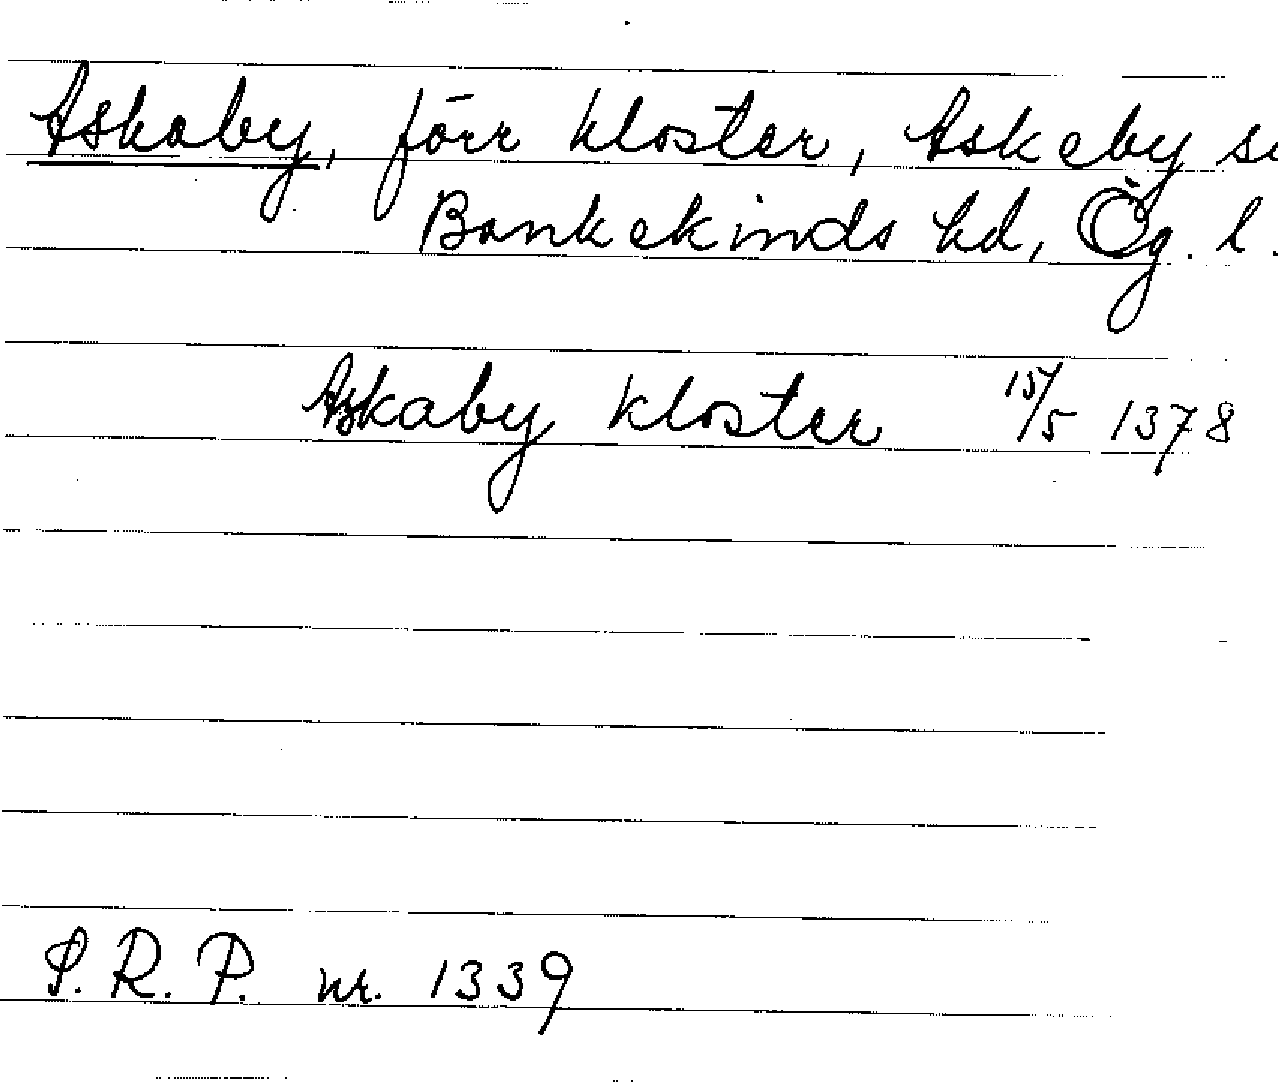 Askaby, förr kloster, Askeby s
Bankekinds hd, Ög. l.
Askaby kloster 15/5 1378
S.R.P. nr. 1339